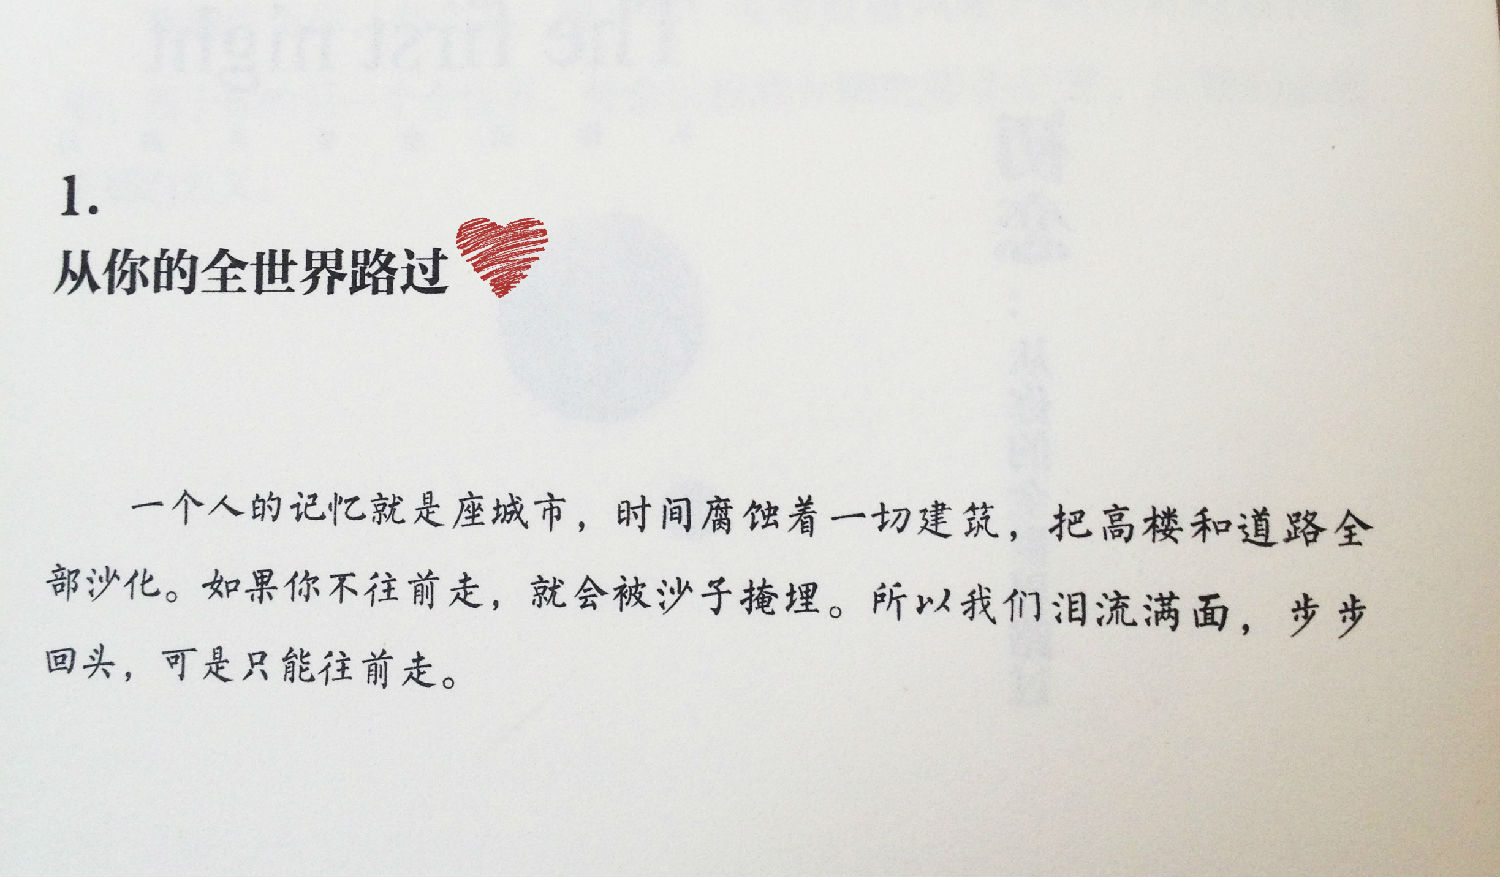 1.
从你的全世界路过
一个人的记忆就是座城市，时间腐蚀着一切建筑，把高楼和道路全
部沙化。如果你不往前走，就会被沙子掩埋。所以我们泪流满面，步步
回头，可是只能往前走。